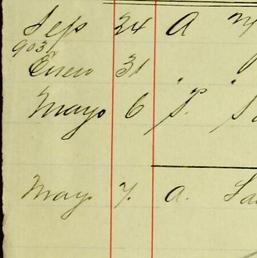 Sep 24 A
903
Enero 31
Mayo 6 P.
Mayo 7. a.